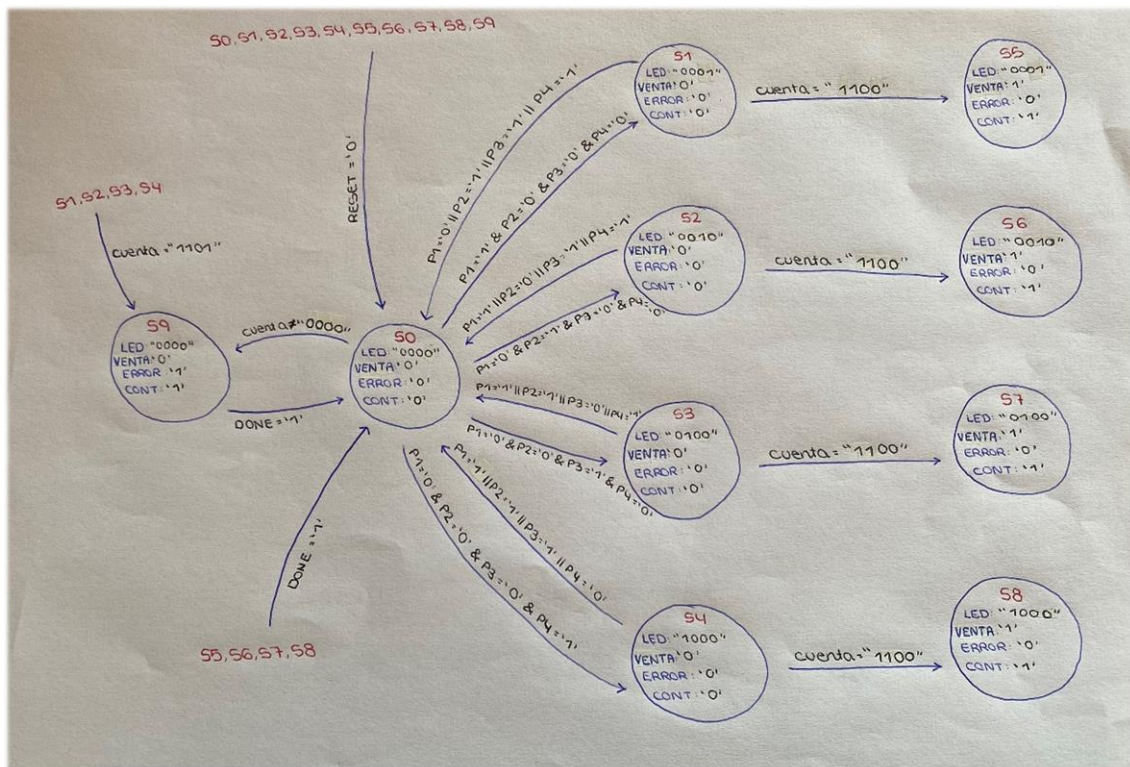 S0, S1, S2, S3, S4, S5, S6, S7, S8, S9
RESET = '0'
S1, S2, S3, S4
cuenta = "1101"
S9
LED "0000"
VENTA: '0'
ERROR: '1'
CONT: '1'
cuenta≠"0000"
DONE = '1'
S0
LED: "0000"
VENTA: '0'
ERROR: '0'
CONT: '0'
DONE = '1'
S5, S6, S7, S8
P1='0' || P2='1' || P3='1' || P4='1'
P1='1' & P2='0' & P3='0' & P4='0'
S1
LED: "0001"
VENTA: '0'
ERROR: '0'
CONT: '0'
cuenta = "1100"
S5
LED: "0001"
VENTA: '1'
ERROR: '0'
CONT: '1'
P1='1' || P2='0' || P3='1' || P4='1'
P1='0' & P2='1' & P3='0' & P4='0'
S2
LED: "0010"
VENTA: '0'
ERROR: '0'
CONT: '0'
cuenta = "1100"
S6
LED: "0010"
VENTA: '1'
ERROR: '0'
CONT: '1'
P1='1' || P2='1' || P3='0' || P4='1'
P1='0' & P2='0' & P3='1' & P4='0'
S3
LED: "0100"
VENTA: '0'
ERROR: '0'
CONT: '0'
cuenta = "1100"
S7
LED: "0100"
VENTA: '1'
ERROR: '0'
CONT: '1'
P1='1' || P2='1' || P3='1' || P4='0'
P1='0' & P2='0' & P3='0' & P4='1'
S4
LED: "1000"
VENTA: '0'
ERROR: '0'
CONT: '0'
cuenta = "1100"
S8
LED: "1000"
VENTA: '1'
ERROR: '0'
CONT: '1'